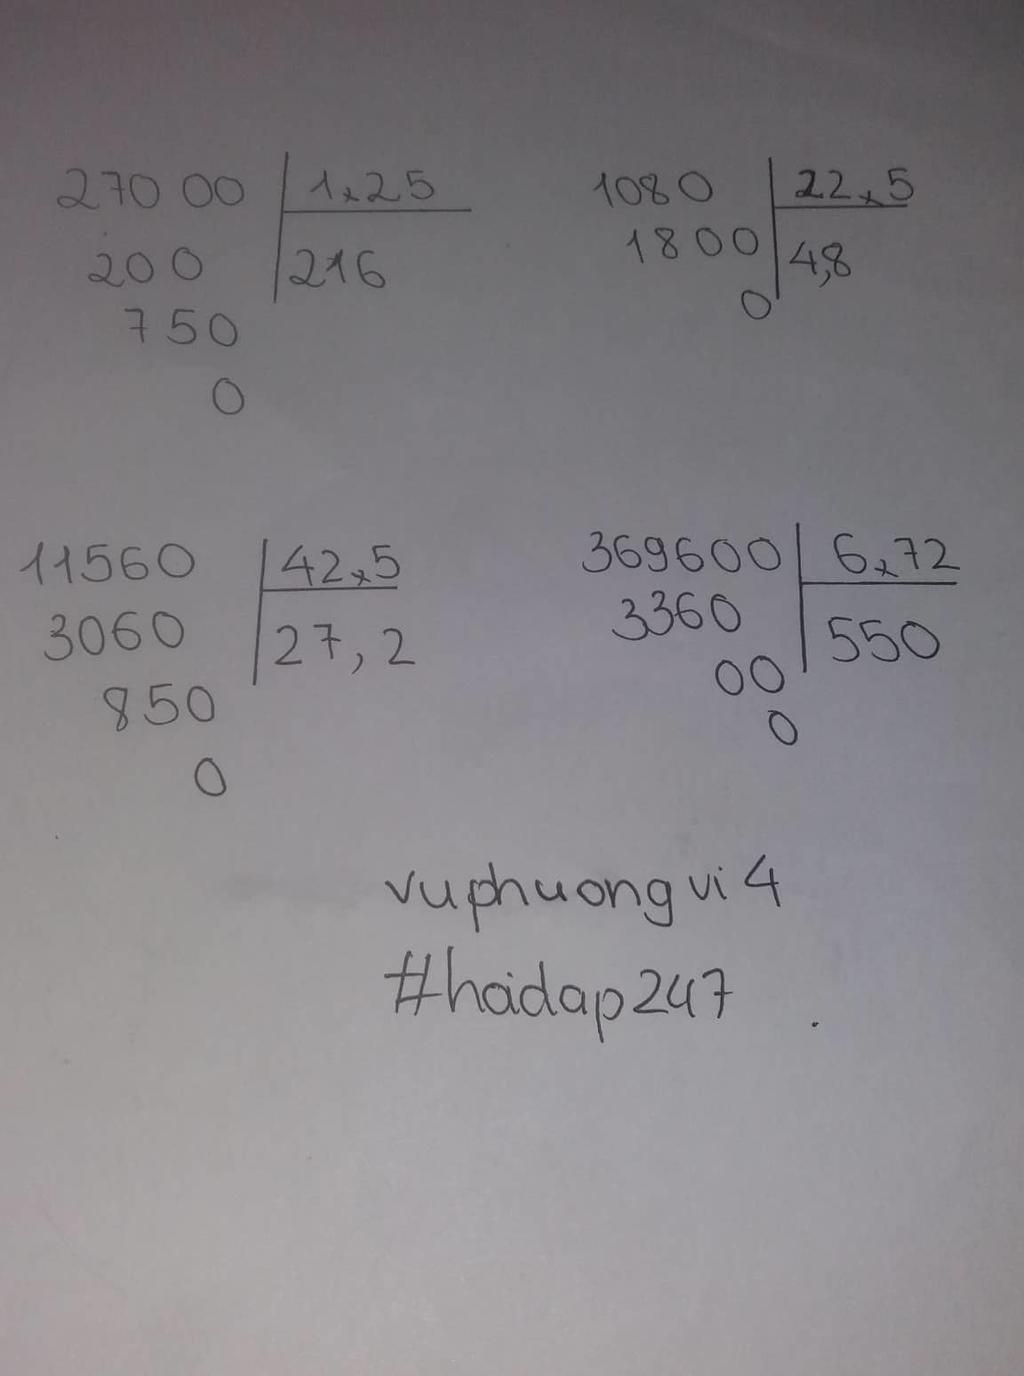 270 00 1,25
200 216
750
0
1080 22,5
1800 4,8
0
11560 42,5
3060 27,2
850
0
369600 6,72
3360 550
00
0
vuphuongvi4
#hoidap247